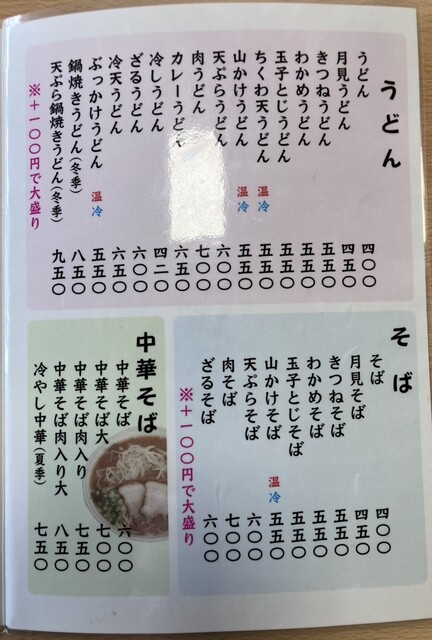 うどん
うどん 四〇〇
月見うどん 四五〇
きつねうどん 五五〇
わかめうどん 五五〇
玉子とじうどん 五五〇
ちくわ天うどん 温冷 五五〇
山かけうどん 温冷 五五〇
天ぷらうどん 六〇〇
肉うどん 七〇〇
カレーうどん 六五〇
冷しうどん 四二〇
ざるうどん 六〇〇
冷天うどん 六五〇
ぶっかけうどん 温冷 五五〇
鍋焼きうどん(冬季) 八五〇
天ぷら鍋焼きうどん(冬季) 九五〇
※+一〇〇円で大盛り
そば
そば 四〇〇
月見そば 四五〇
きつねそば 五五〇
わかめそば 五五〇
玉子とじそば 五五〇
山かけそば 温冷 五五〇
天ぷらそば 六〇〇
肉そば 七〇〇
ざるそば 六〇〇
※+一〇〇円で大盛り
中華そば
中華そば 六〇〇
中華そば大 七〇〇
中華そば肉入り 七五〇
中華そば肉入り大 八五〇
冷やし中華(夏季) 七五〇